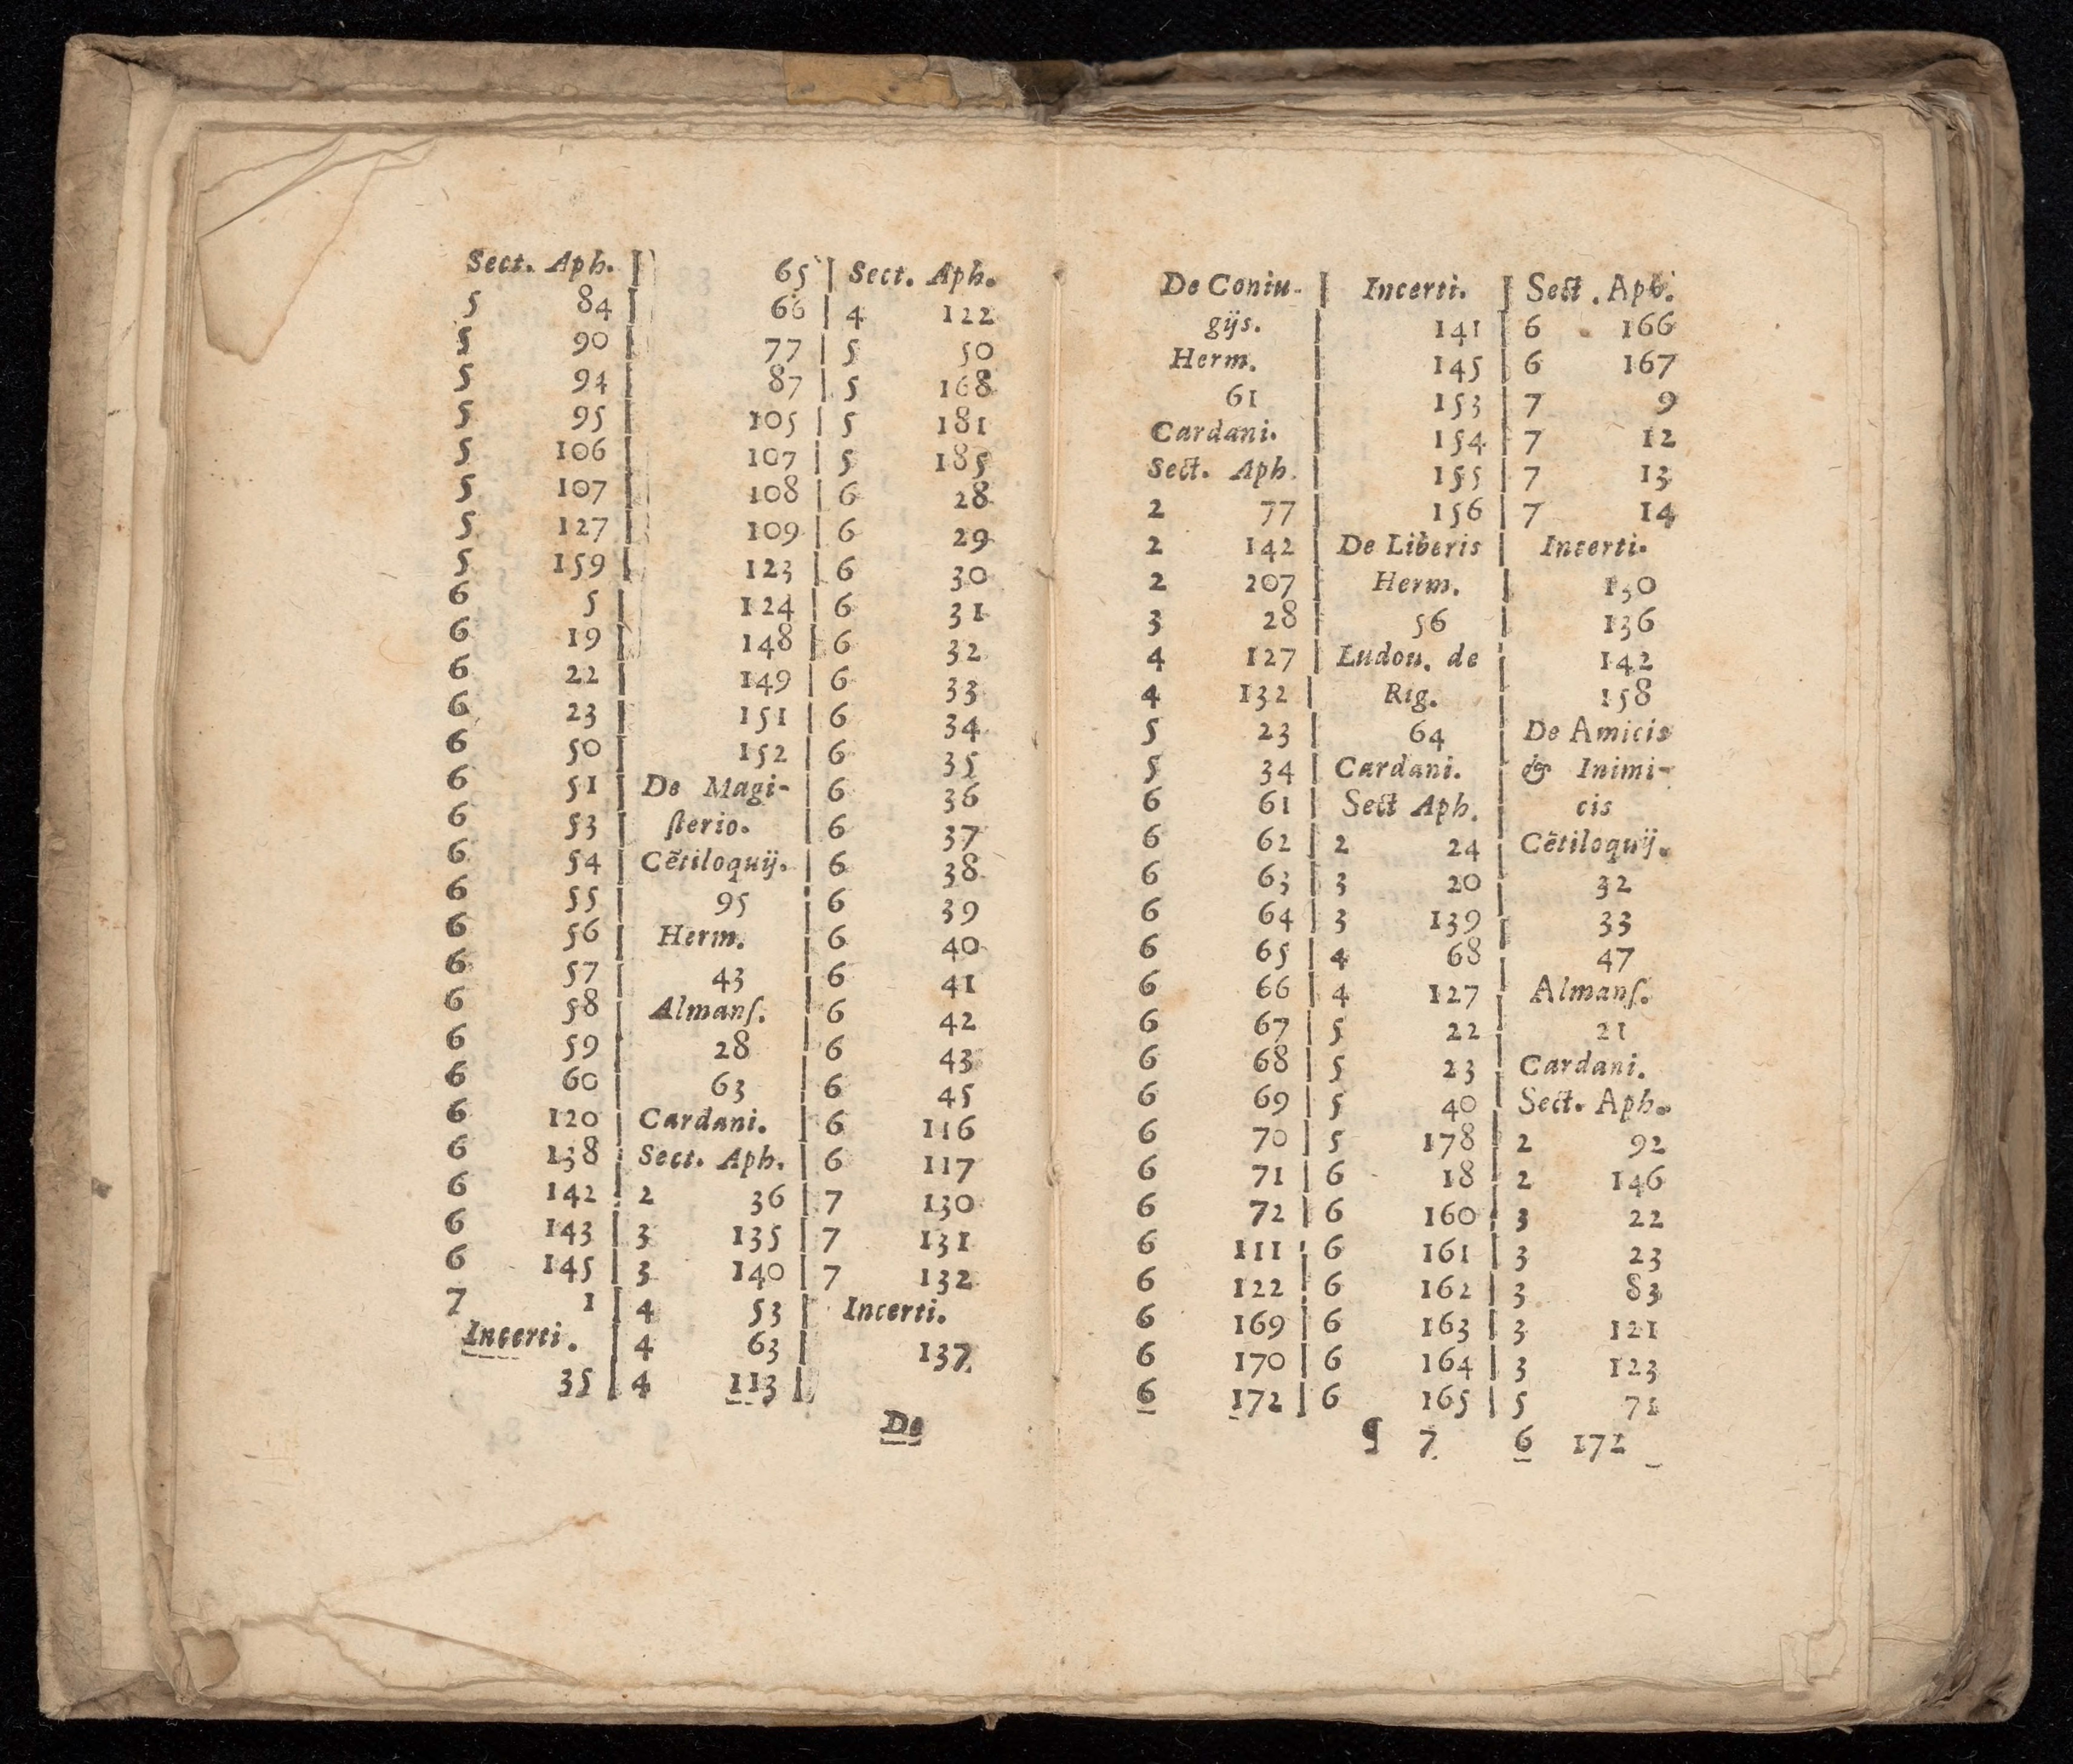 Sect. Aph.
5 84
5 90
5 94
5 95
5 106
5 107
5 127
5 159
6 5
6 19
6 22
6 23
6 50
6 51
6 53
6 54
6 55
6 56
6 57
6 58
6 59
6 60
6 120
6 138
6 142
6 143
6 145
7 1
Incerti.
35
65
66
77
87
105
107
108
109
123
124
148
149
151
152
De Magi-
ſterio.
Cẽtiloquij.
95
Herm.
43
Almanſ.
28
63
Cardani.
Sect. Aph.
2 36
3 135
3 140
4 53
4 63
4 113
Sect. Aph.
4 122
5 50
5 168
5 181
5 185
6 28
6 29
6 30
6 31
6 32
6 33
6 34
6 35
6 36
6 37
6 38
6 39
6 40
6 41
6 42
6 43
6 45
6 116
6 117
7 130
7 131
7 132
Incerti.
137
De
De Coniu-
gijs.
Herm.
61
Cardani.
Sect. Aph.
2 77
2 142
2 207
3 28
4 127
4 132
5 23
5 34
6 61
6 62
6 63
6 64
6 65
6 66
6 67
6 68
6 69
6 70
6 71
6 72
6 111
6 122
6 169
6 170
6 172
Incerti.
141
145
153
154
155
156
De Liberis
Herm.
56
Ludou. de
Rig.
64
Cardani.
Sect Aph.
2 24
3 20
3 139
4 68
4 127
5 22
5 23
5 40
5 178
6 18
6 160
6 161
6 162
6 163
6 164
6 165
Sect. Aph.
6 166
6 167
7 9
7 12
7 13
7 14
Incerti.
130
136
142
158
De Amicis
& Inimi-
cis
Cẽtiloquij.
32
33
47
Almanſ.
21
Cardani.
Sect. Aph.
2 92
2 146
3 22
3 23
3 83
3 121
3 123
5 71
6 172
¶ 7